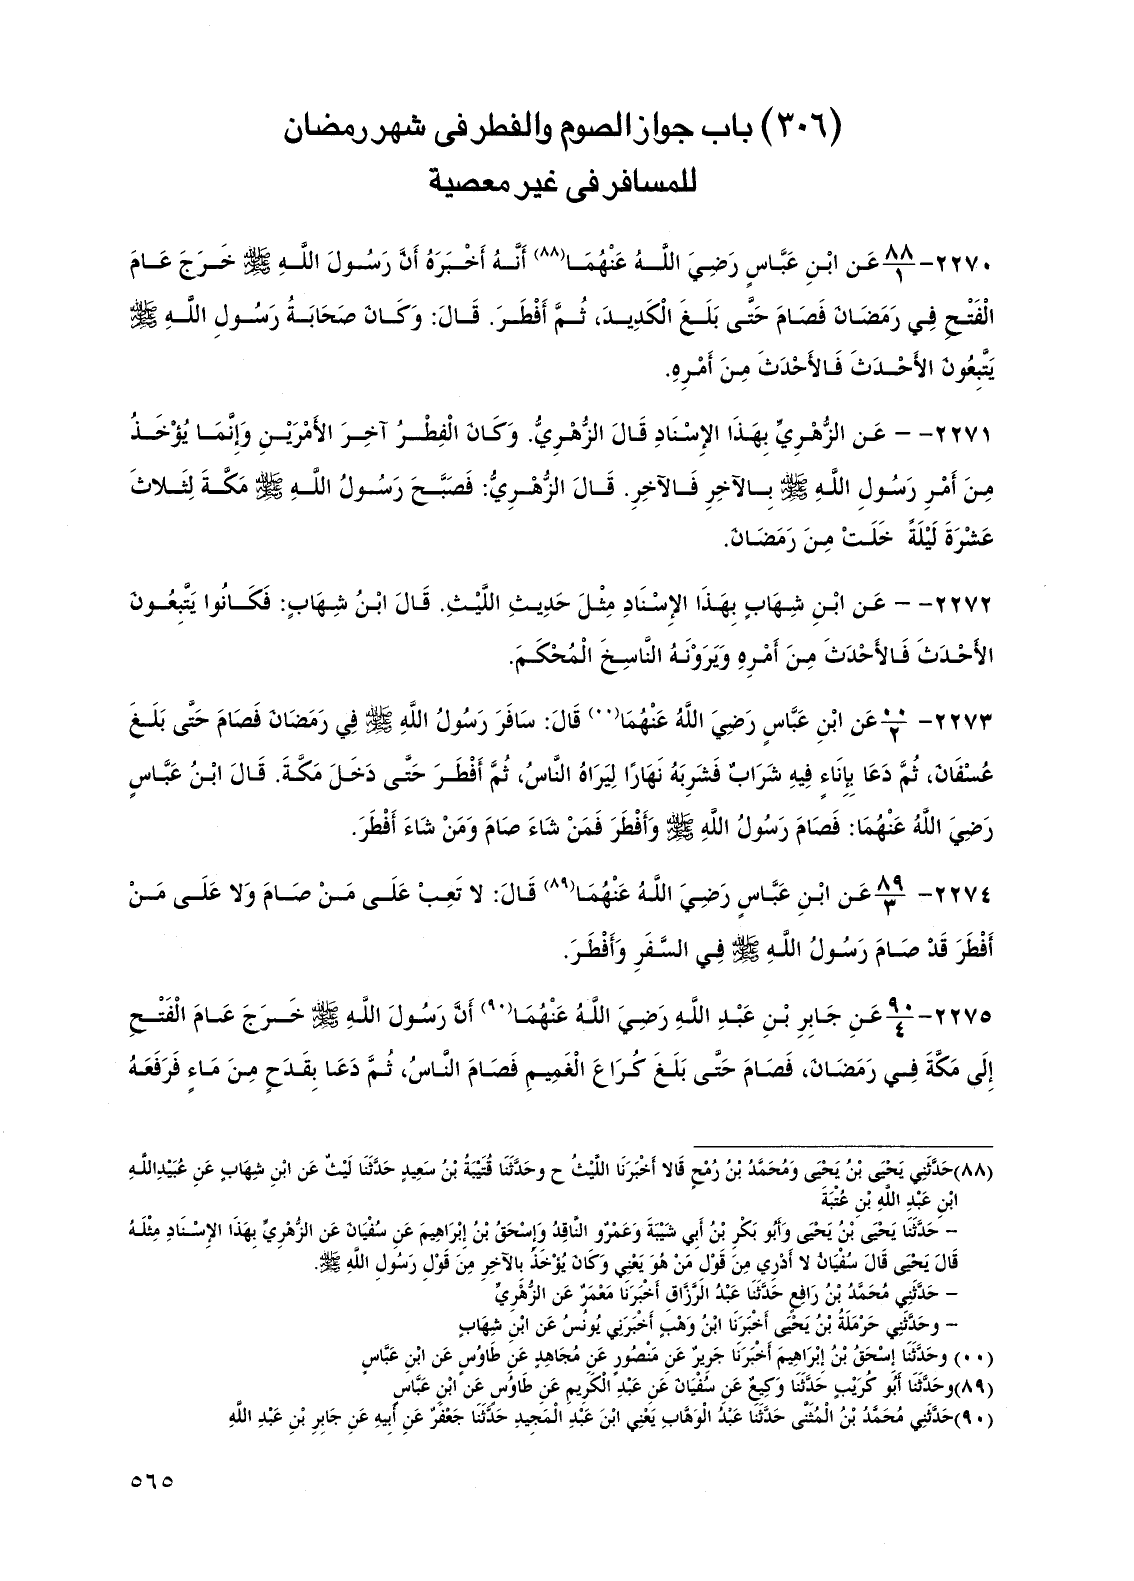 (٣٠٦) باب جواز الصوم والفطر فى شهر رمضان
للمسافر فى غير معصية
٢٢٧٠- ٨٨/١ عَنِ ابْنِ عَبَّاسٍ رَضِيَ اللَّهُ عَنْهُمَا(٨٨) أَنَّهُ أَخْبَرَهُ أَنَّ رَسُولَ اللَّهِ ﷺ خَرَجَ عَامَ
الْفَتْحِ فِي رَمَضَانَ فَصَامَ حَتَّى بَلَغَ الْكَدِيدَ، ثُمَّ أَفْطَرَ. قَالَ: وَكَانَ صَحَابَةُ رَسُولِ اللَّهِ ﷺ
يَتَّبِعُونَ الأَحْدَثَ فَالأَحْدَثَ مِنَ أَمْرِهِ.
٢٢٧١- – عَنِ الزُّهْرِيِّ بِهَذَا الإِسْنَادِ قَالَ الزُّهْرِيُّ. وَكَانَ الْفِطْرُ آخِرَ الأَمْرَيْنِ وَإِنَّمَا يُؤْخَذُ
مِنَ أَمْرِ رَسُولِ اللَّهِ ﷺ بِالآخِرِ فَالآخِرِ. قَالَ الزُّهْرِيُّ: فَصَبَّحَ رَسُولُ اللَّهِ ﷺ مَكَّةَ لِثَلاثَ
عَشْرَةَ لَيْلَةً خَلَتْ مِنَ رَمَضَانَ.
٢٢٧٢- – عَنِ ابْنِ شِهَابٍ بِهَذَا الإِسْنَادِ مِثْلَ حَدِيثِ اللَّيْثِ. قَالَ ابْنُ شِهَابٍ: فَكَانُوا يَتَّبِعُونَ
الأَحْدَثَ فَالأَحْدَثَ مِنَ أَمْرِهِ وَيَرَوْنَهُ النَّاسِخَ الْمُحْكَمَ.
٢٢٧٣- ٠٠/٢ عَنِ ابْنِ عَبَّاسٍ رَضِيَ اللَّهُ عَنْهُمَا(٠٠) قَالَ: سَافَرَ رَسُولُ اللَّهِ ﷺ فِي رَمَضَانَ فَصَامَ حَتَّى بَلَغَ
عُسْفَانَ، ثُمَّ دَعَا بِإِنَاءٍ فِيهِ شَرَابٌ فَشَرِبَهُ نَهَارًا لِيَرَاهُ النَّاسُ، ثُمَّ أَفْطَرَ حَتَّى دَخَلَ مَكَّةَ. قَالَ ابْنُ عَبَّاسٍ
رَضِيَ اللَّهُ عَنْهُمَا: فَصَامَ رَسُولُ اللَّهِ ﷺ وَأَفْطَرَ فَمَنْ شَاءَ صَامَ وَمَنْ شَاءَ أَفْطَرَ.
٢٢٧٤- ٨٩/٣ عَنِ ابْنِ عَبَّاسٍ رَضِيَ اللَّهُ عَنْهُمَا(٨٩) قَالَ: لا تَعِبْ عَلَى مَنْ صَامَ وَلا عَلَى مَنْ
أَفْطَرَ قَدْ صَامَ رَسُولُ اللَّهِ ﷺ فِي السَّفَرِ وَأَفْطَرَ.
٢٢٧٥- ٩٠/٤ عَنِ جَابِرِ بْنِ عَبْدِ اللَّهِ رَضِيَ اللَّهُ عَنْهُمَا(٩٠) أَنَّ رَسُولَ اللَّهِ ﷺ خَرَجَ عَامَ الْفَتْحِ
إِلَى مَكَّةَ فِي رَمَضَانَ، فَصَامَ حَتَّى بَلَغَ كُرَاعَ الْغَمِيمِ فَصَامَ النَّاسُ، ثُمَّ دَعَا بِقَدَحٍ مِنَ مَاءٍ فَرَفَعَهُ
(٨٨)حَدَّثَنِي يَحْيَى بْنُ يَحْيَى وَمُحَمَّدُ بْنُ رُمْحٍ قَالا أَخْبَرَنَا اللَّيْثُ ح وحَدَّثَنَا قُتَيْبَةُ بْنُ سَعِيدٍ حَدَّثَنَا لَيْثٌ عَنِ ابْنِ شِهَابٍ عَنِ عُبَيْدِاللَّهِ
ابْنِ عَبْدِ اللَّهِ بْنِ عُتْبَةَ
– حَدَّثَنَا يَحْيَى بْنُ يَحْيَى وَأَبُو بَكْرِ بْنُ أَبِي شَيْبَةَ وَعَمْرٌو النَّاقِدُ وَإِسْحَقُ بْنُ إِبْرَاهِيمَ عَنِ سُفْيَانَ عَنِ الزُّهْرِيِّ بِهَذَا الإِسْنَادِ مِثْلَهُ
قَالَ يَحْيَى قَالَ سُفْيَانُ لا أَدْرِي مِنَ قَوْلِ مَنْ هُوَ يَعْنِي وَكَانَ يُؤْخَذُ بِالآخِرِ مِنَ قَوْلِ رَسُولِ اللَّهِ ﷺ.
– حَدَّثَنِي مُحَمَّدُ بْنُ رَافِعٍ حَدَّثَنَا عَبْدُ الرَّزَّاقِ أَخْبَرَنَا مَعْمَرٌ عَنِ الزُّهْرِيِّ
– وحَدَّثَنِي حَرْمَلَةُ بْنُ يَحْيَى أَخْبَرَنَا ابْنُ وَهْبٍ أَخْبَرَنِي يُونُسُ عَنِ ابْنِ شِهَابٍ
(٠٠) وحَدَّثَنَا إِسْحَقُ بْنُ إِبْرَاهِيمَ أَخْبَرَنَا جَرِيرٌ عَنِ مَنْصُورٍ عَنِ مُجَاهِدٍ عَنِ طَاوُسٍ عَنِ ابْنِ عَبَّاسٍ
(٨٩)وحَدَّثَنَا أَبُو كُرَيْبٍ حَدَّثَنَا وَكِيعٌ عَنِ سُفْيَانَ عَنِ عَبْدِ الْكَرِيمِ عَنِ طَاوُسٍ عَنِ ابْنِ عَبَّاسٍ
(٩٠)حَدَّثَنِي مُحَمَّدُ بْنُ الْمُثَنَّى حَدَّثَنَا عَبْدُ الْوَهَّابِ يَعْنِي ابْنَ عَبْدِ الْمَجِيدِ حَدَّثَنَا جَعْفَرٌ عَنِ أَبِيهِ عَنِ جَابِرِ بْنِ عَبْدِ اللَّهِ
٥٦٥